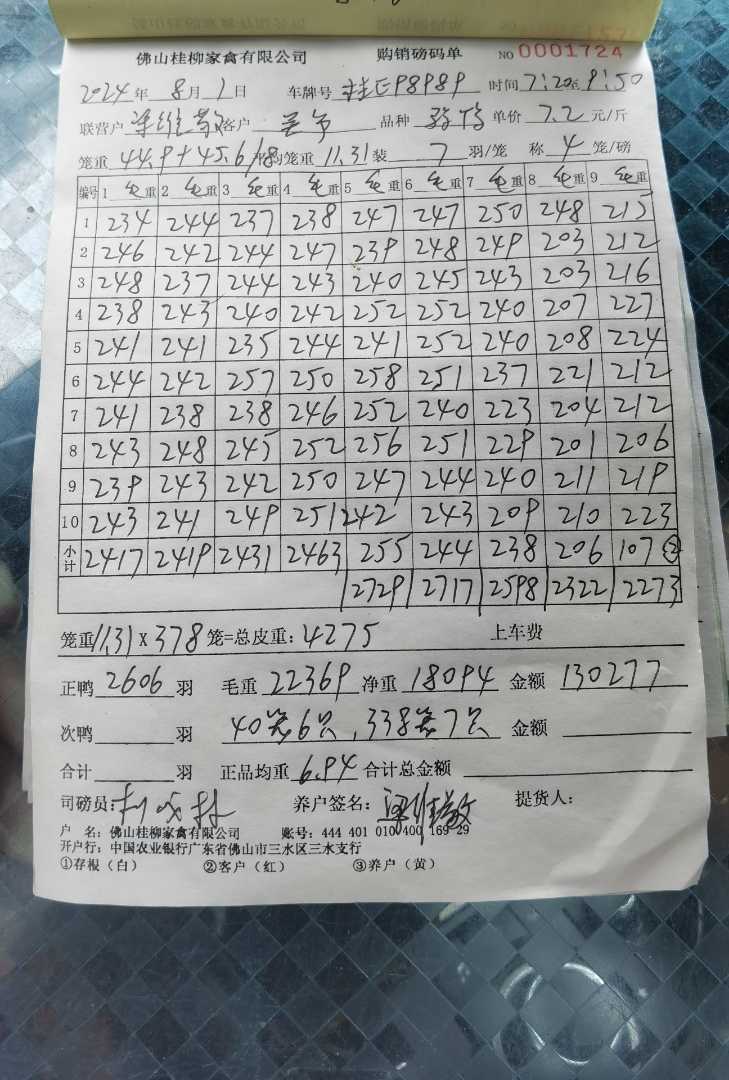 佛山桂柳家禽有限公司 购销磅码单 NO 0001724
2024年 8月 1日 车牌号 桂E98989 时间 7:20至9:50
联营户 梁维敬 客户 品种 单价 7.2 元/斤
笼重 44.9+45.6/8 平均笼重 11.31 装 7 羽/笼 称 4 笼/磅
编号 1 毛重 2 毛重 3 毛重 4 毛重 5 毛重 6 毛重 7 毛重 8 毛重 9 毛重
1 234 244 237 238 247 247 250 248 215
2 246 242 244 247 239 248 249 203 212
3 248 237 244 243 240 245 243 203 216
4 238 243 240 242 252 252 240 207 227
5 241 241 235 244 241 252 240 208 224
6 244 242 257 250 258 251 237 221 212
7 241 238 238 246 252 240 223 204 212
8 243 248 245 252 256 251 229 201 206
9 239 243 242 250 247 244 240 211 219
10 243 241 249 251 242 243 209 210 223
小计 2417 2419 2431 2463 255 244 238 206 107 ②
2729 2717 2598 2322 2273
笼重 11.31 X 378 笼=总皮重: 4275 上车费
正鸭 2606 羽 毛重 22369 净重 18094 金额 130277
次鸭 羽 40笼6只,338笼7只 金额
合计 羽 正品均重 6.94 合计总金额
司磅员: 养户签名: 梁维敬 提货人:
户 名: 佛山桂柳家禽有限公司 账号: 444 401 010 400 169 29
开户行: 中国农业银行广东省佛山市三水区三水支行
①存根(白) ②客户(红) ③养户(黄)